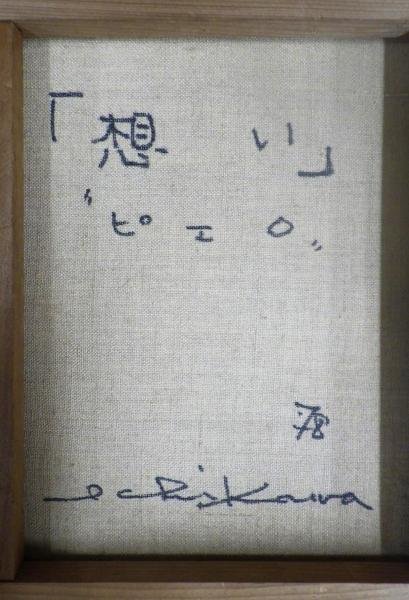 「想い」
"ピエロ"
Ichikawa